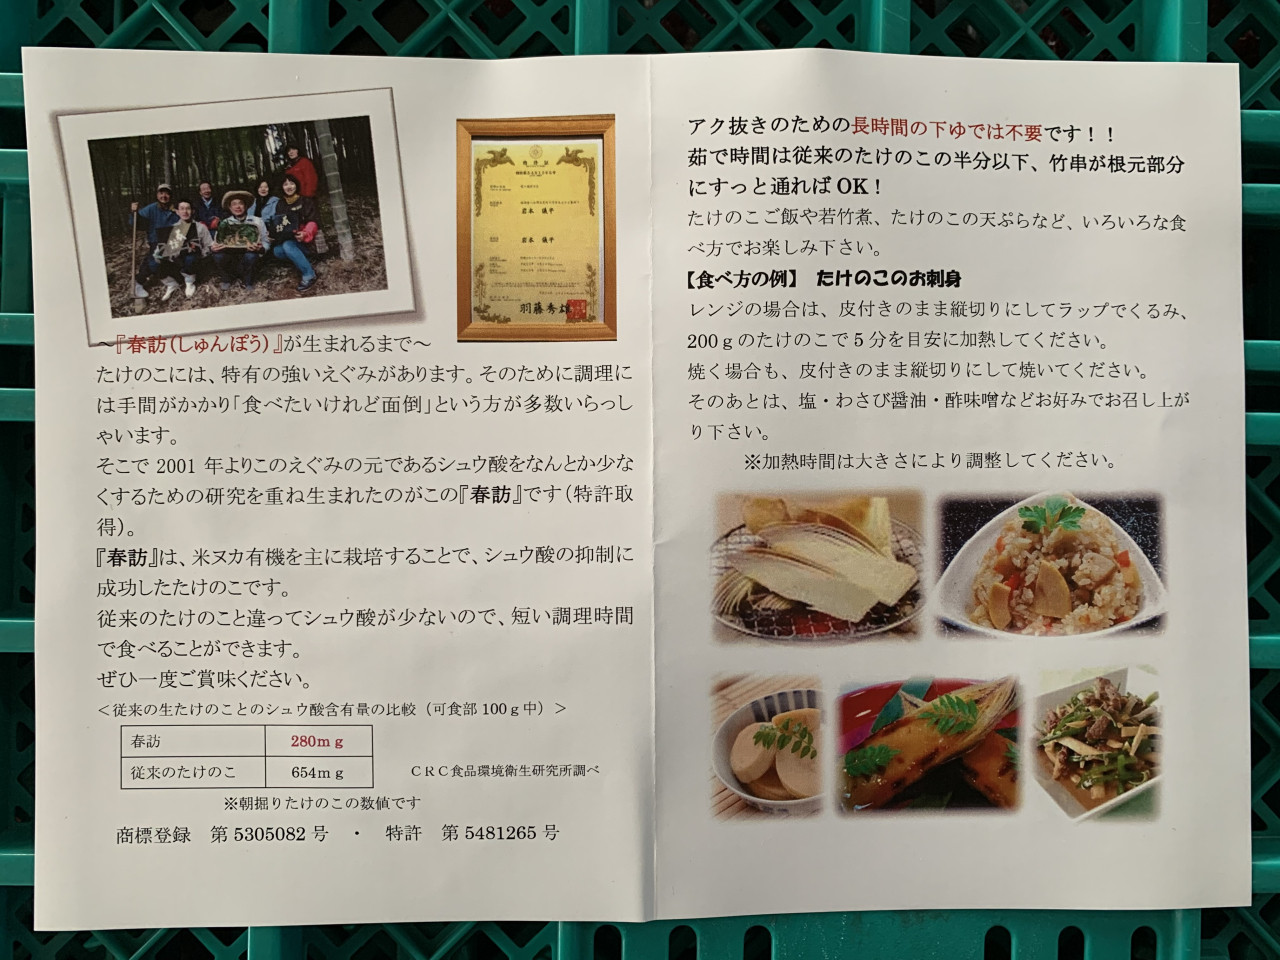 特許証
岩本 儀平
岩本 儀平
羽藤秀雄
～『春訪（しゅんぽう）』が生まれるまで～
たけのこには、特有の強いえぐみがあります。そのために調理に
は手間がかかり「食べたいけれど面倒」という方が多数いらっし
ゃいます。
そこで 2001 年よりこのえぐみの元であるシュウ酸をなんとか少な
くするための研究を重ね生まれたのがこの『春訪』です（特許取
得）。
『春訪』は、米ヌカ有機を主に栽培することで、シュウ酸の抑制に
成功したたけのこです。
従来のたけのこと違ってシュウ酸が少ないので、短い調理時間
で食べることができます。
ぜひ一度ご賞味ください。
＜従来の生たけのことのシュウ酸含有量の比較（可食部 100ｇ中）＞
春訪 280ｍｇ
従来のたけのこ 654ｍｇ ＣＲＣ食品環境衛生研究所調べ
※朝掘りたけのこの数値です
商標登録 第 5305082 号 ・ 特許 第 5481265 号
アク抜きのための長時間の下ゆでは不要です！！
茹で時間は従来のたけのこの半分以下、竹串が根元部分
にすっと通ればOK！
たけのこご飯や若竹煮、たけのこの天ぷらなど、いろいろな食
べ方でお楽しみ下さい。
【食べ方の例】 たけのこのお刺身
レンジの場合は、皮付きのまま縦切りにしてラップでくるみ、
200ｇのたけのこで５分を目安に加熱してください。
焼く場合も、皮付きのまま縦切りにして焼いてください。
そのあとは、塩・わさび醤油・酢味噌などお好みでお召し上が
り下さい。
※加熱時間は大きさにより調整してください。